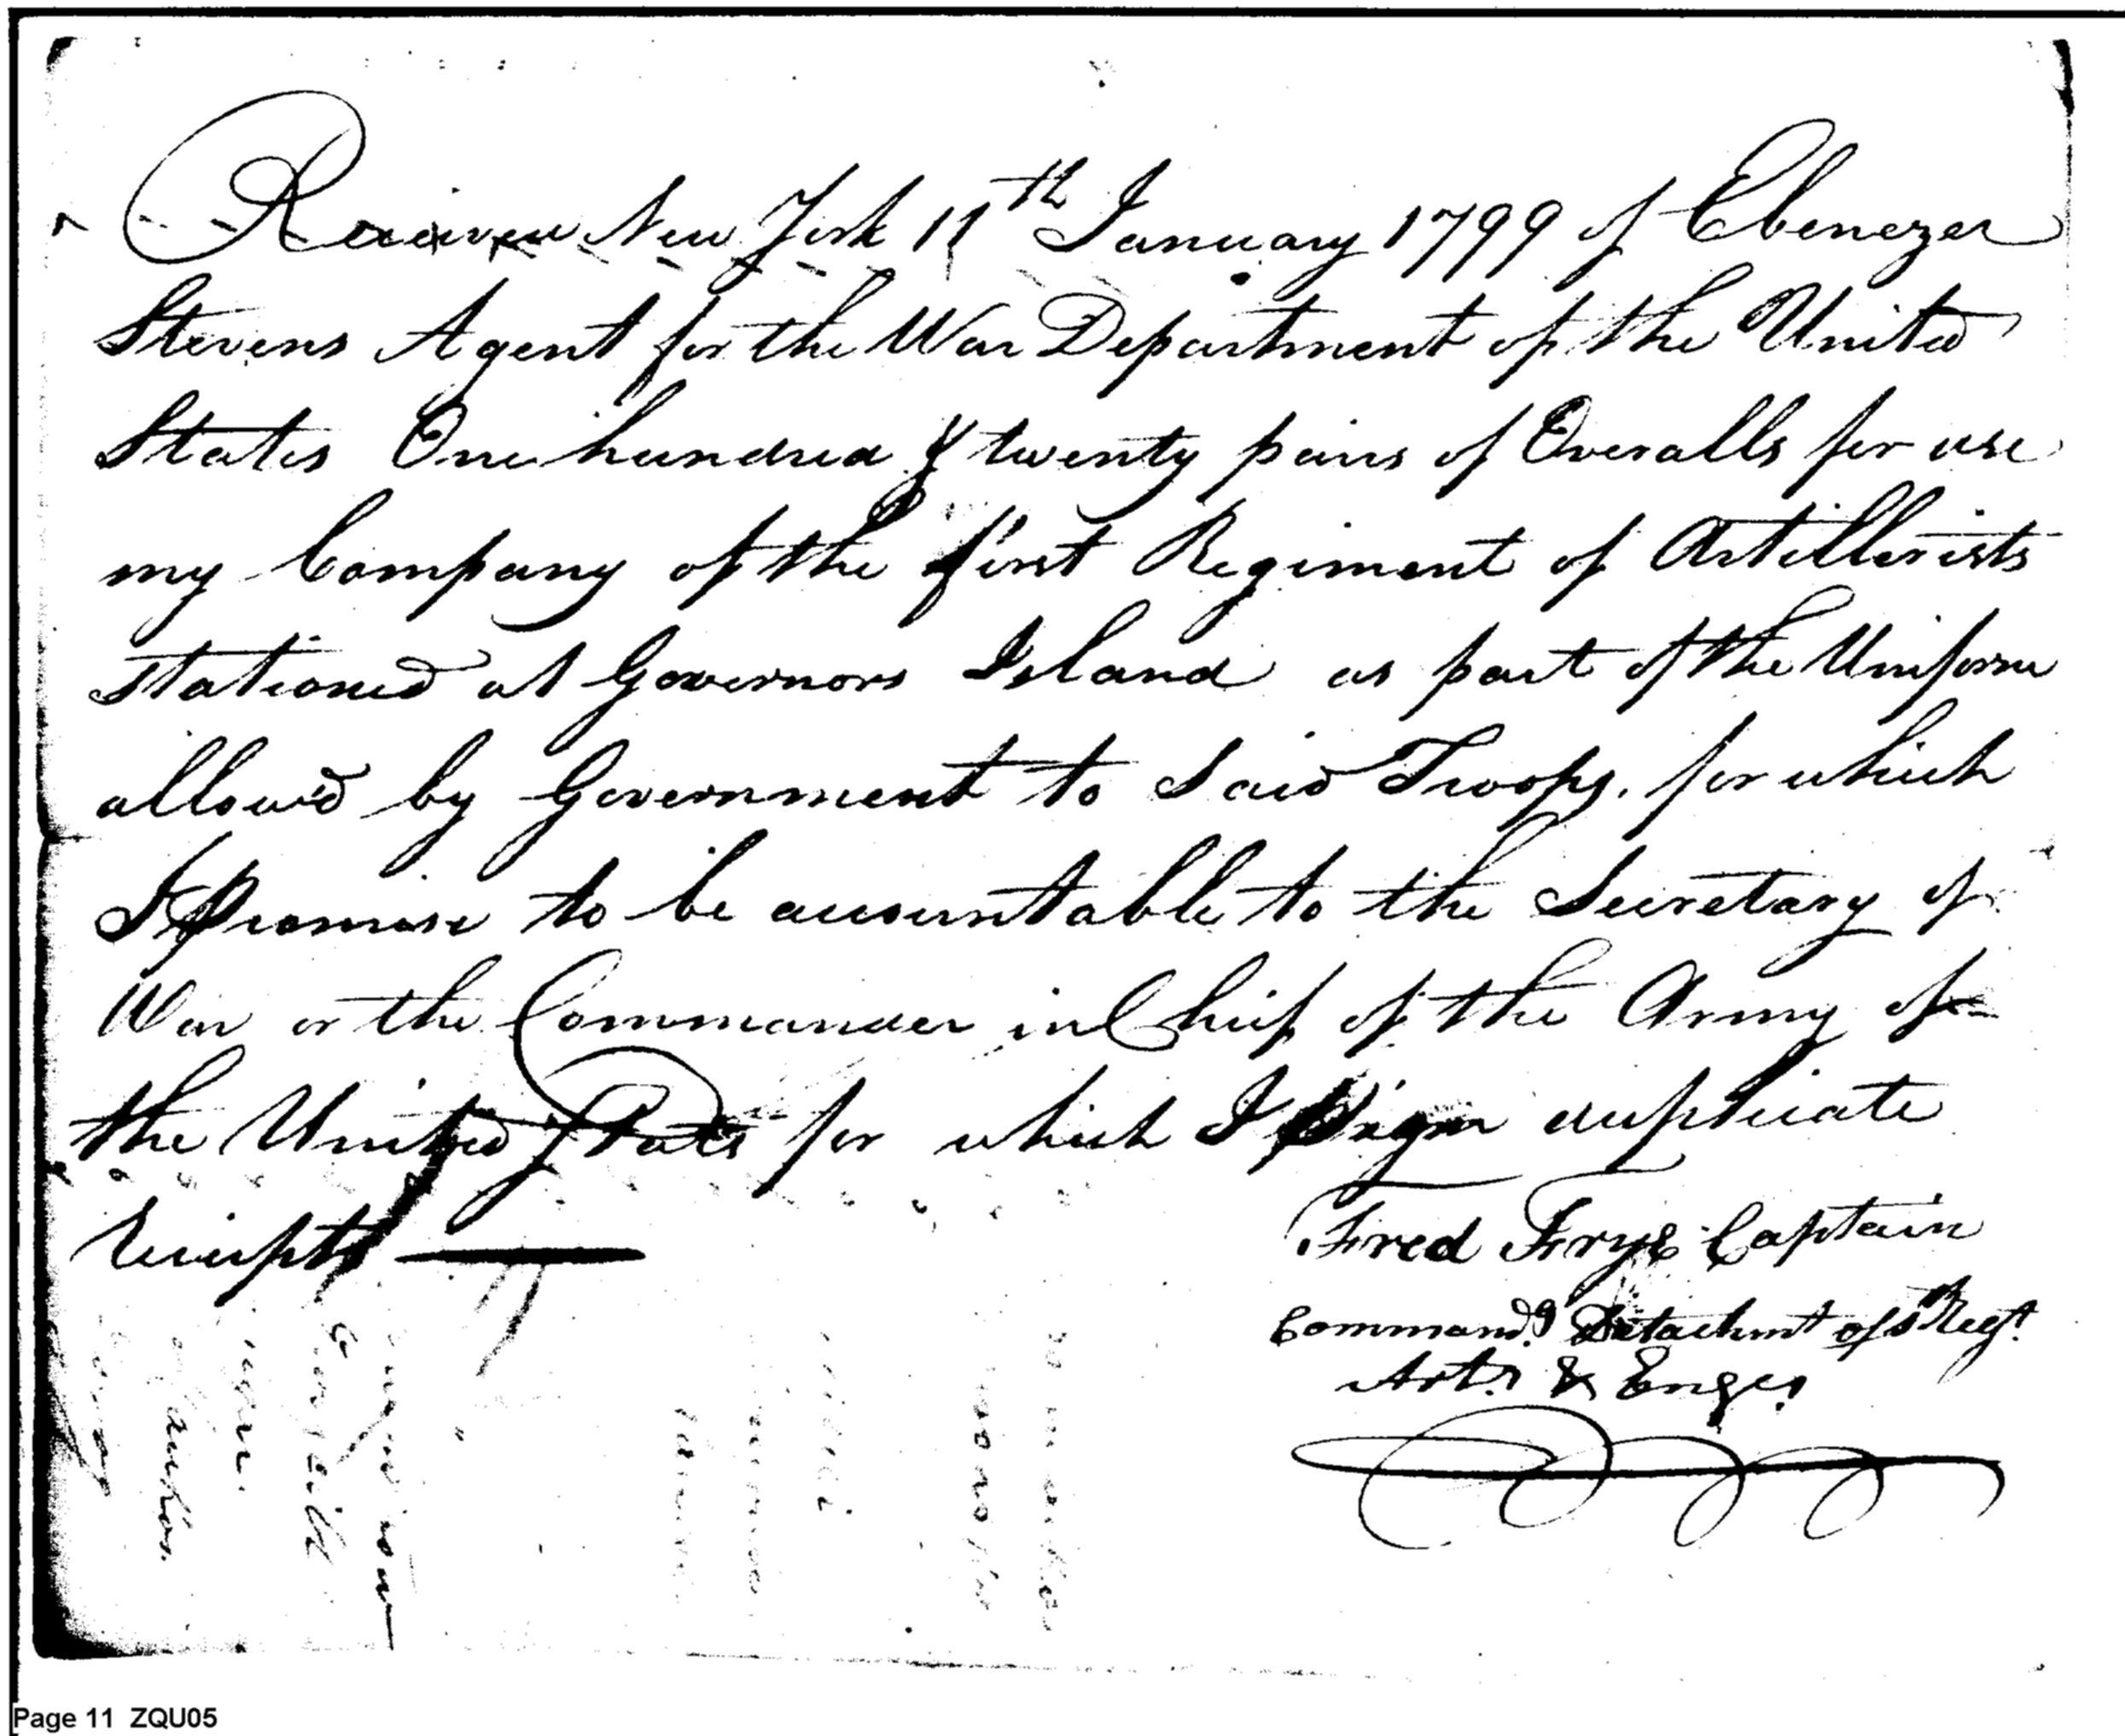 Received New York 11th January 1799 of Ebenezer
Stevens Agent for the War Department of the United
States One hundred & twenty pairs of Overalls for use
my Company of the first Regiment of Artillerists
stationed at Governors Island as part of the Uniform
allow'd by Government to Said Troops, for which
I promise to be accountable to the Secretary of
War or the Commander in Chief of the Army of
the United States for which I sign duplicate
receipts
Fred Frye Captain
Command.g Detachmt of 1 Regt.
Arts. & Enges.
Page 11 ZQU05